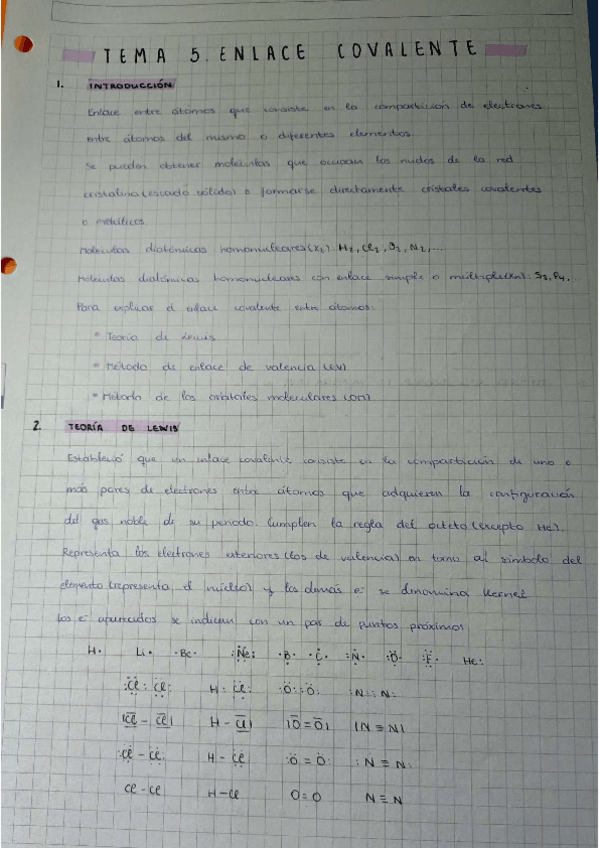 TEMA 5. ENLACE COVALENTE
1. INTRODUCCIÓN
Enlace entre átomos que consiste en la compartición de electrones
entre átomos del mismo o diferentes elementos.
Se pueden obtener moléculas que ocupan los nudos de la red
cristalina (estado sólido) o formarse directamente cristales covalentes
o metálicos
Moléculas diatómicas homonucleares (X₂): H₂, Cl₂, O₂, N₂, ...
Moléculas diatómicas homonucleares con enlace simple o múltiple (Xn): S₈, P₄, ...
Para explicar el enlace covalente entre átomos:
• Teoría de Lewis
• Método de enlace de valencia (EV)
• Método de los orbitales moleculares (OM)
2. TEORÍA DE LEWIS
Estableció que un enlace covalente consiste en la compartición de uno o
más pares de electrones entre átomos que adquieren la configuración
del gas noble de su periodo. Cumplen la regla del octeto (excepto He).
Representa los electrones exteriores (los de valencia) en torno al símbolo del
elemento (representa el núcleo) y los demás e⁻ se denomina Kernel
Los e⁻ apareados se indican con un par de puntos próximos
H· Li· ·Be· :Ne: ·B· ·C· :N· ·O· :F· He:
:Cl:Cl: H:Cl: :O::O: :N:::N:
|Cl-Cl| H-Cl| |O=O| |N≡N|
:Cl-Cl: H-Cl: :O=O: :N≡N:
Cl-Cl H-Cl O=O N≡N